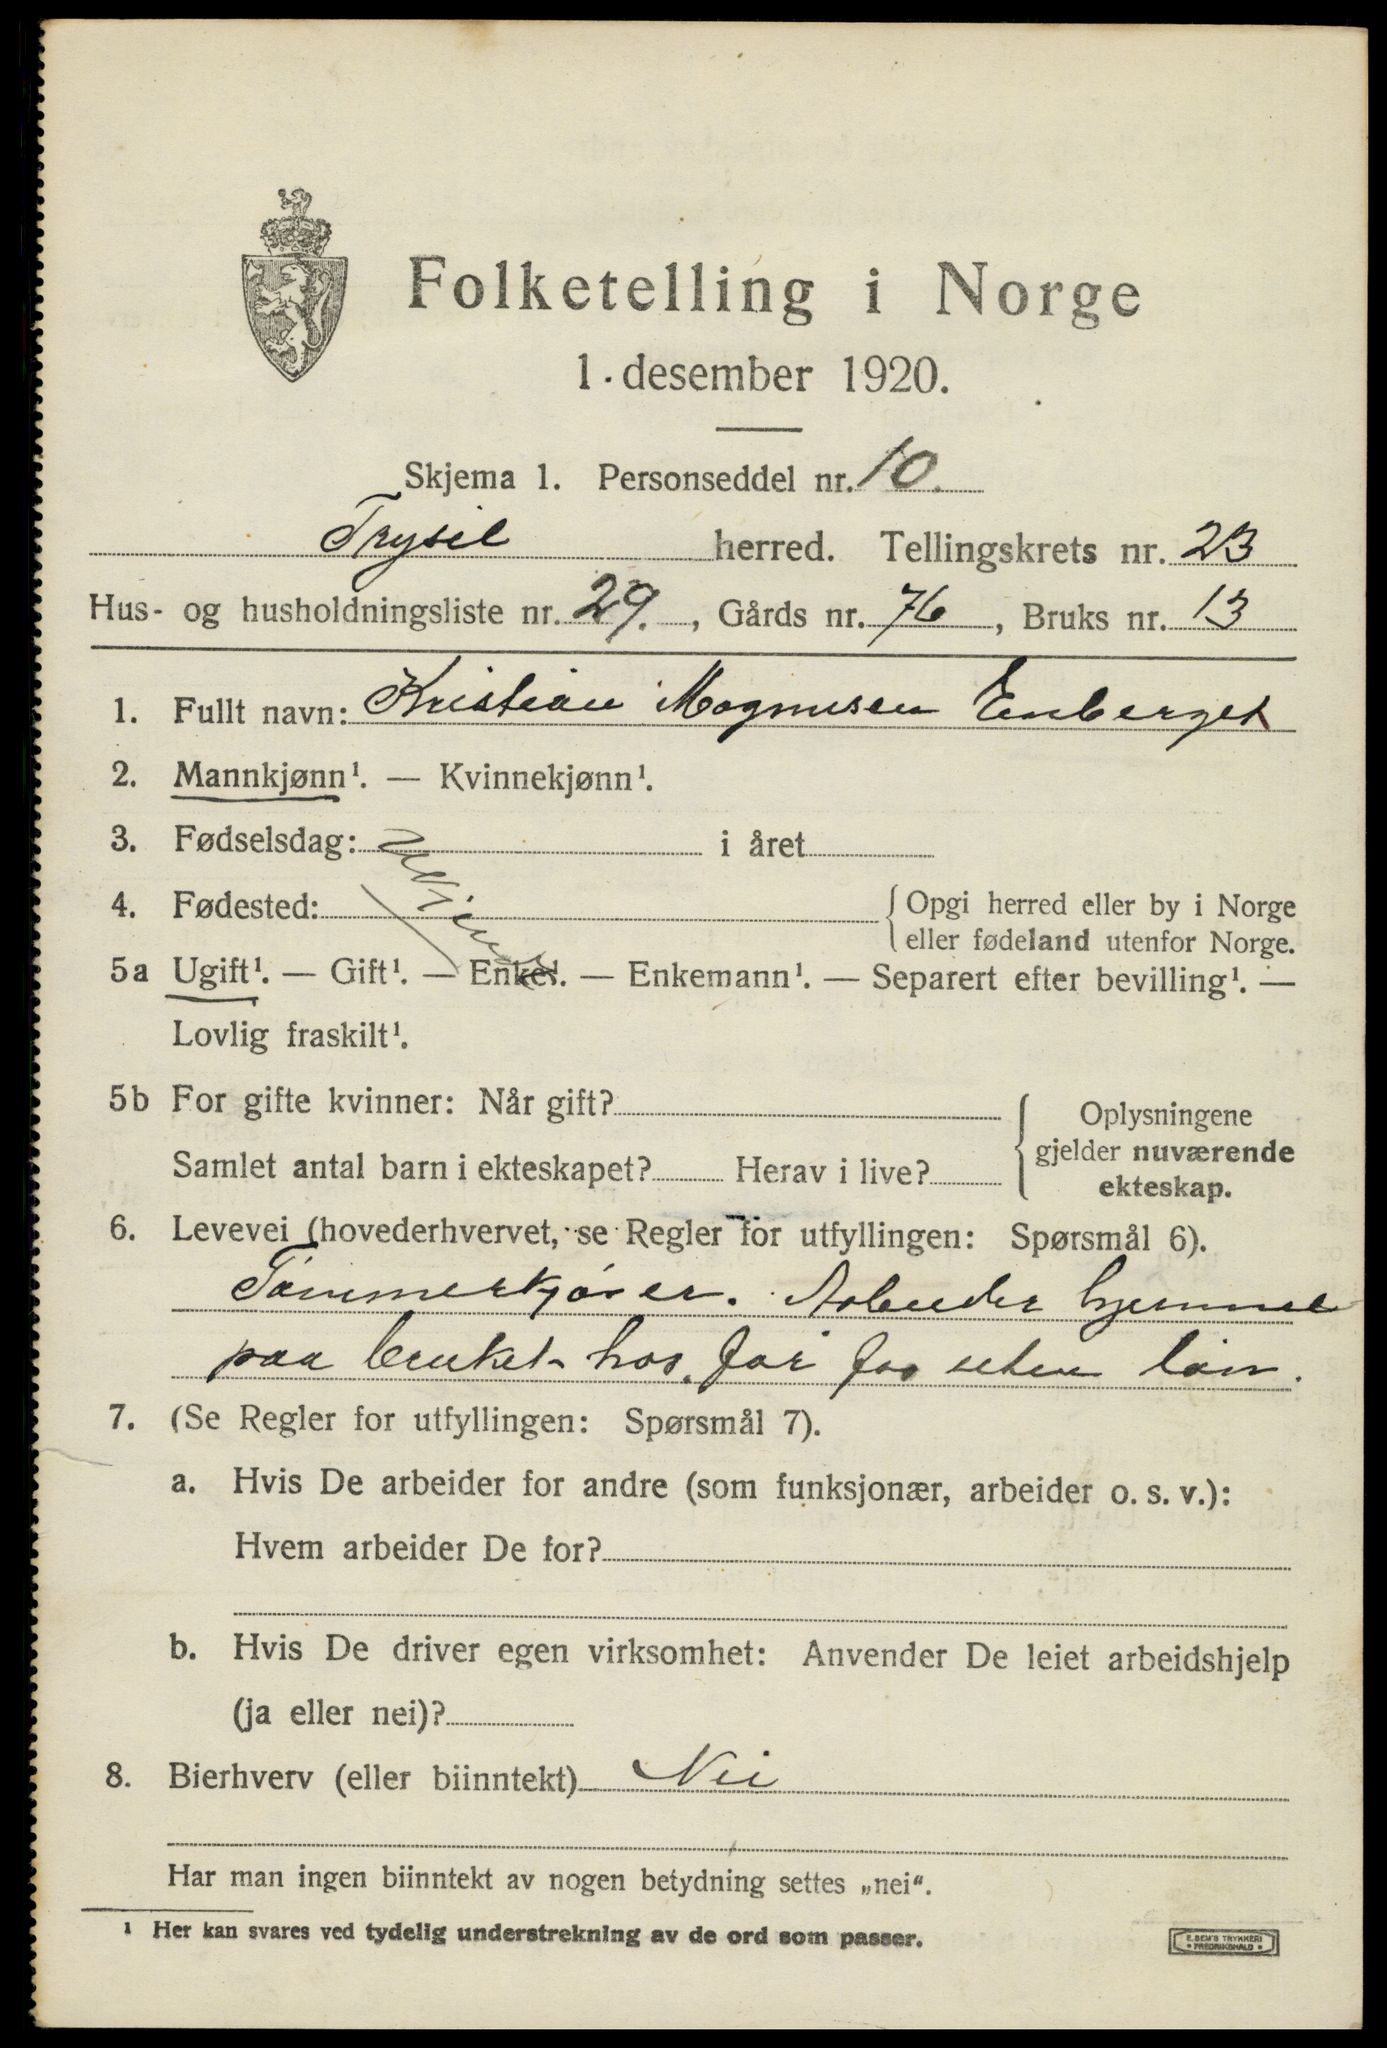 Folketelling i Norge
1. desember 1920.
Skjema 1. Personseddel nr. 10.
Trysil herred. Tellingskrets nr. 23
Hus- og husholdningsliste nr. 29. , Gårds nr. 76 , Bruks nr. 13
1. Fullt navn: Kristian Magnusen Enberget
2. Mannkjønn¹. — Kvinnekjønn¹.
3. Fødselsdag: i året
4. Fødested: Opgi herred eller by i Norge
eller fødeland utenfor Norge.
5a Ugift¹. — Gift¹. — Enke¹. — Enkemann¹. — Separert efter bevilling¹. —
Lovlig fraskilt¹.
5b For gifte kvinner: Når gift?
Samlet antal barn i ekteskapet? Herav i live?
Oplysningene
gjelder nuværende
ekteskap.
6. Levevei (hovederhvervet, se Regler for utfyllingen: Spørsmål 6).
Tømmerkjører. Arbeider hjemme
paa bruket hos far for uten løn.
7. (Se Regler for utfyllingen: Spørsmål 7).
a. Hvis De arbeider for andre (som funksjonær, arbeider o. s. v.):
Hvem arbeider De for?
b. Hvis De driver egen virksomhet: Anvender De leiet arbeidshjelp
(ja eller nei)?
8. Bierhverv (eller biinntekt) Nei
Har man ingen biinntekt av nogen betydning settes „nei“.
¹ Her kan svares ved tydelig understrekning av de ord som passer.
E. SEM'S TRYKKERI
• FREDRIKSHALD •